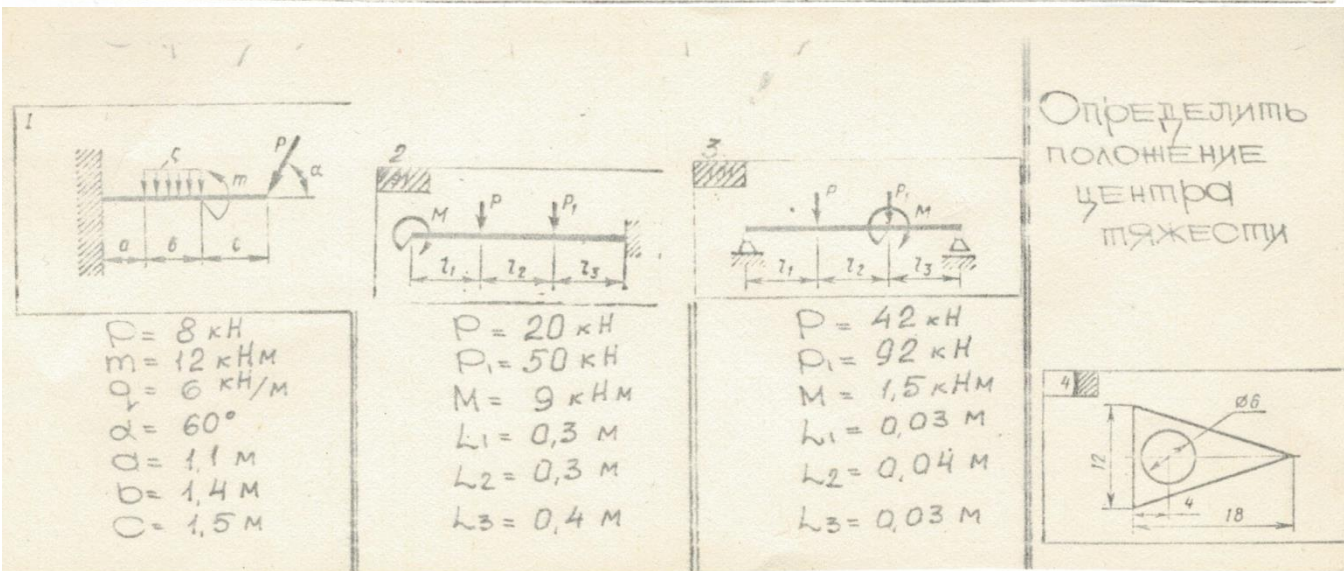 1
q
P
α
m
a
в
c
P = 8 кН
m = 12 кНм
q = 6 кН/м
α = 60°
a = 1,1 м
b = 1,4 м
C = 1,5 м
2
M
P
P₁
l₁
l₂
l₃
P = 20 кН
P₁ = 50 кН
M = 9 кНм
L₁ = 0,3 м
L₂ = 0,3 м
L₃ = 0,4 м
3
P
P₁
M
l₁
l₂
l₃
P = 42 кН
P₁ = 92 кН
M = 1,5 кНм
L₁ = 0,03 м
L₂ = 0,04 м
L₃ = 0,03 м
Определить
положение
центра
тяжести
4
ø6
12
4
18